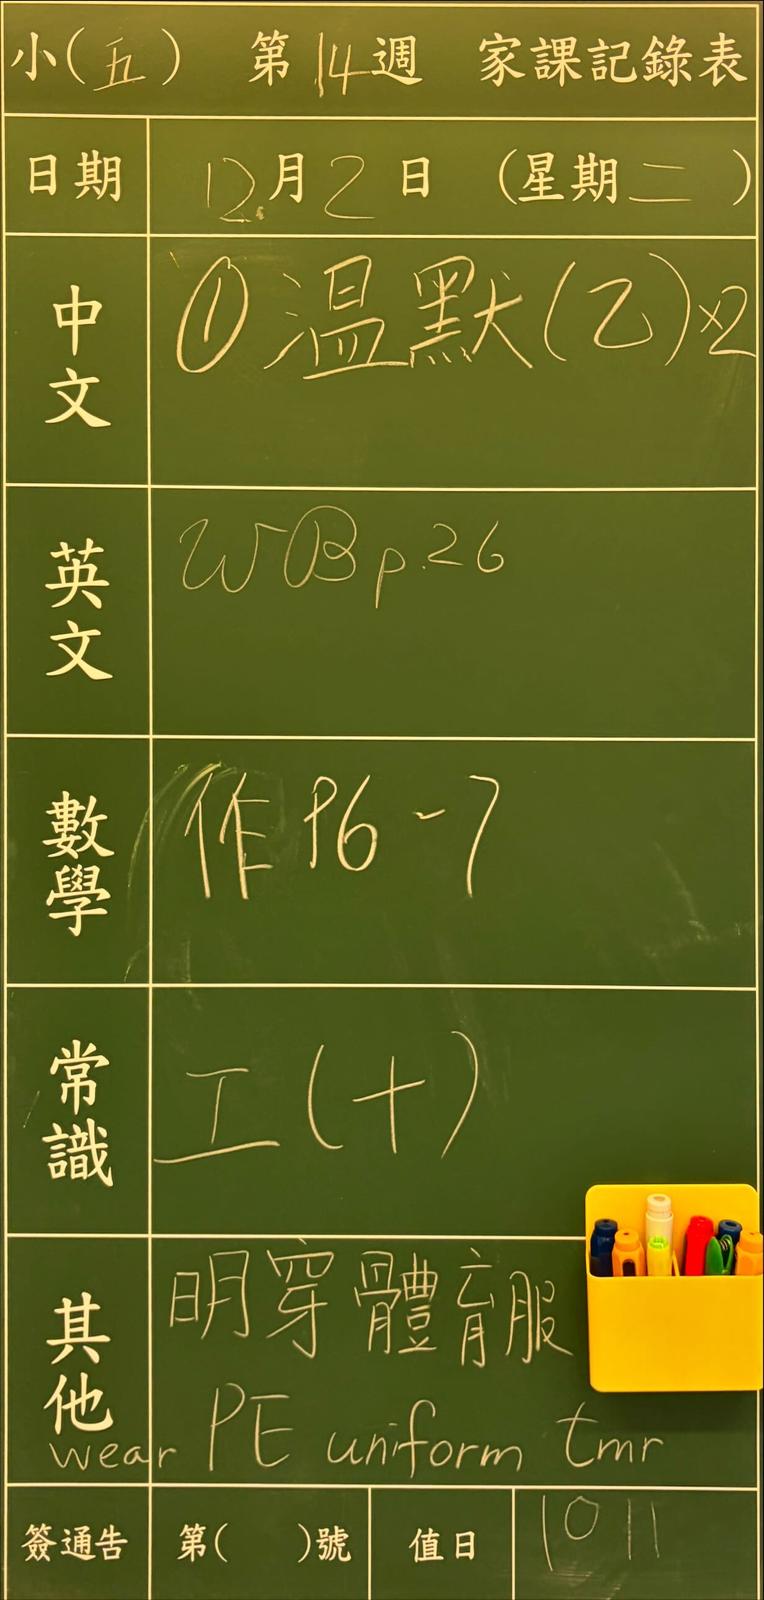 小(五) 第14週 家課記錄表
日期 12月2日 (星期二)
中文 ①溫默(乙)×2
英文 WB p.26
數學 作P6-7
常識 工(十)
其他 明穿體育服
wear PE uniform tmr
簽通告 第( )號 值日 10 11